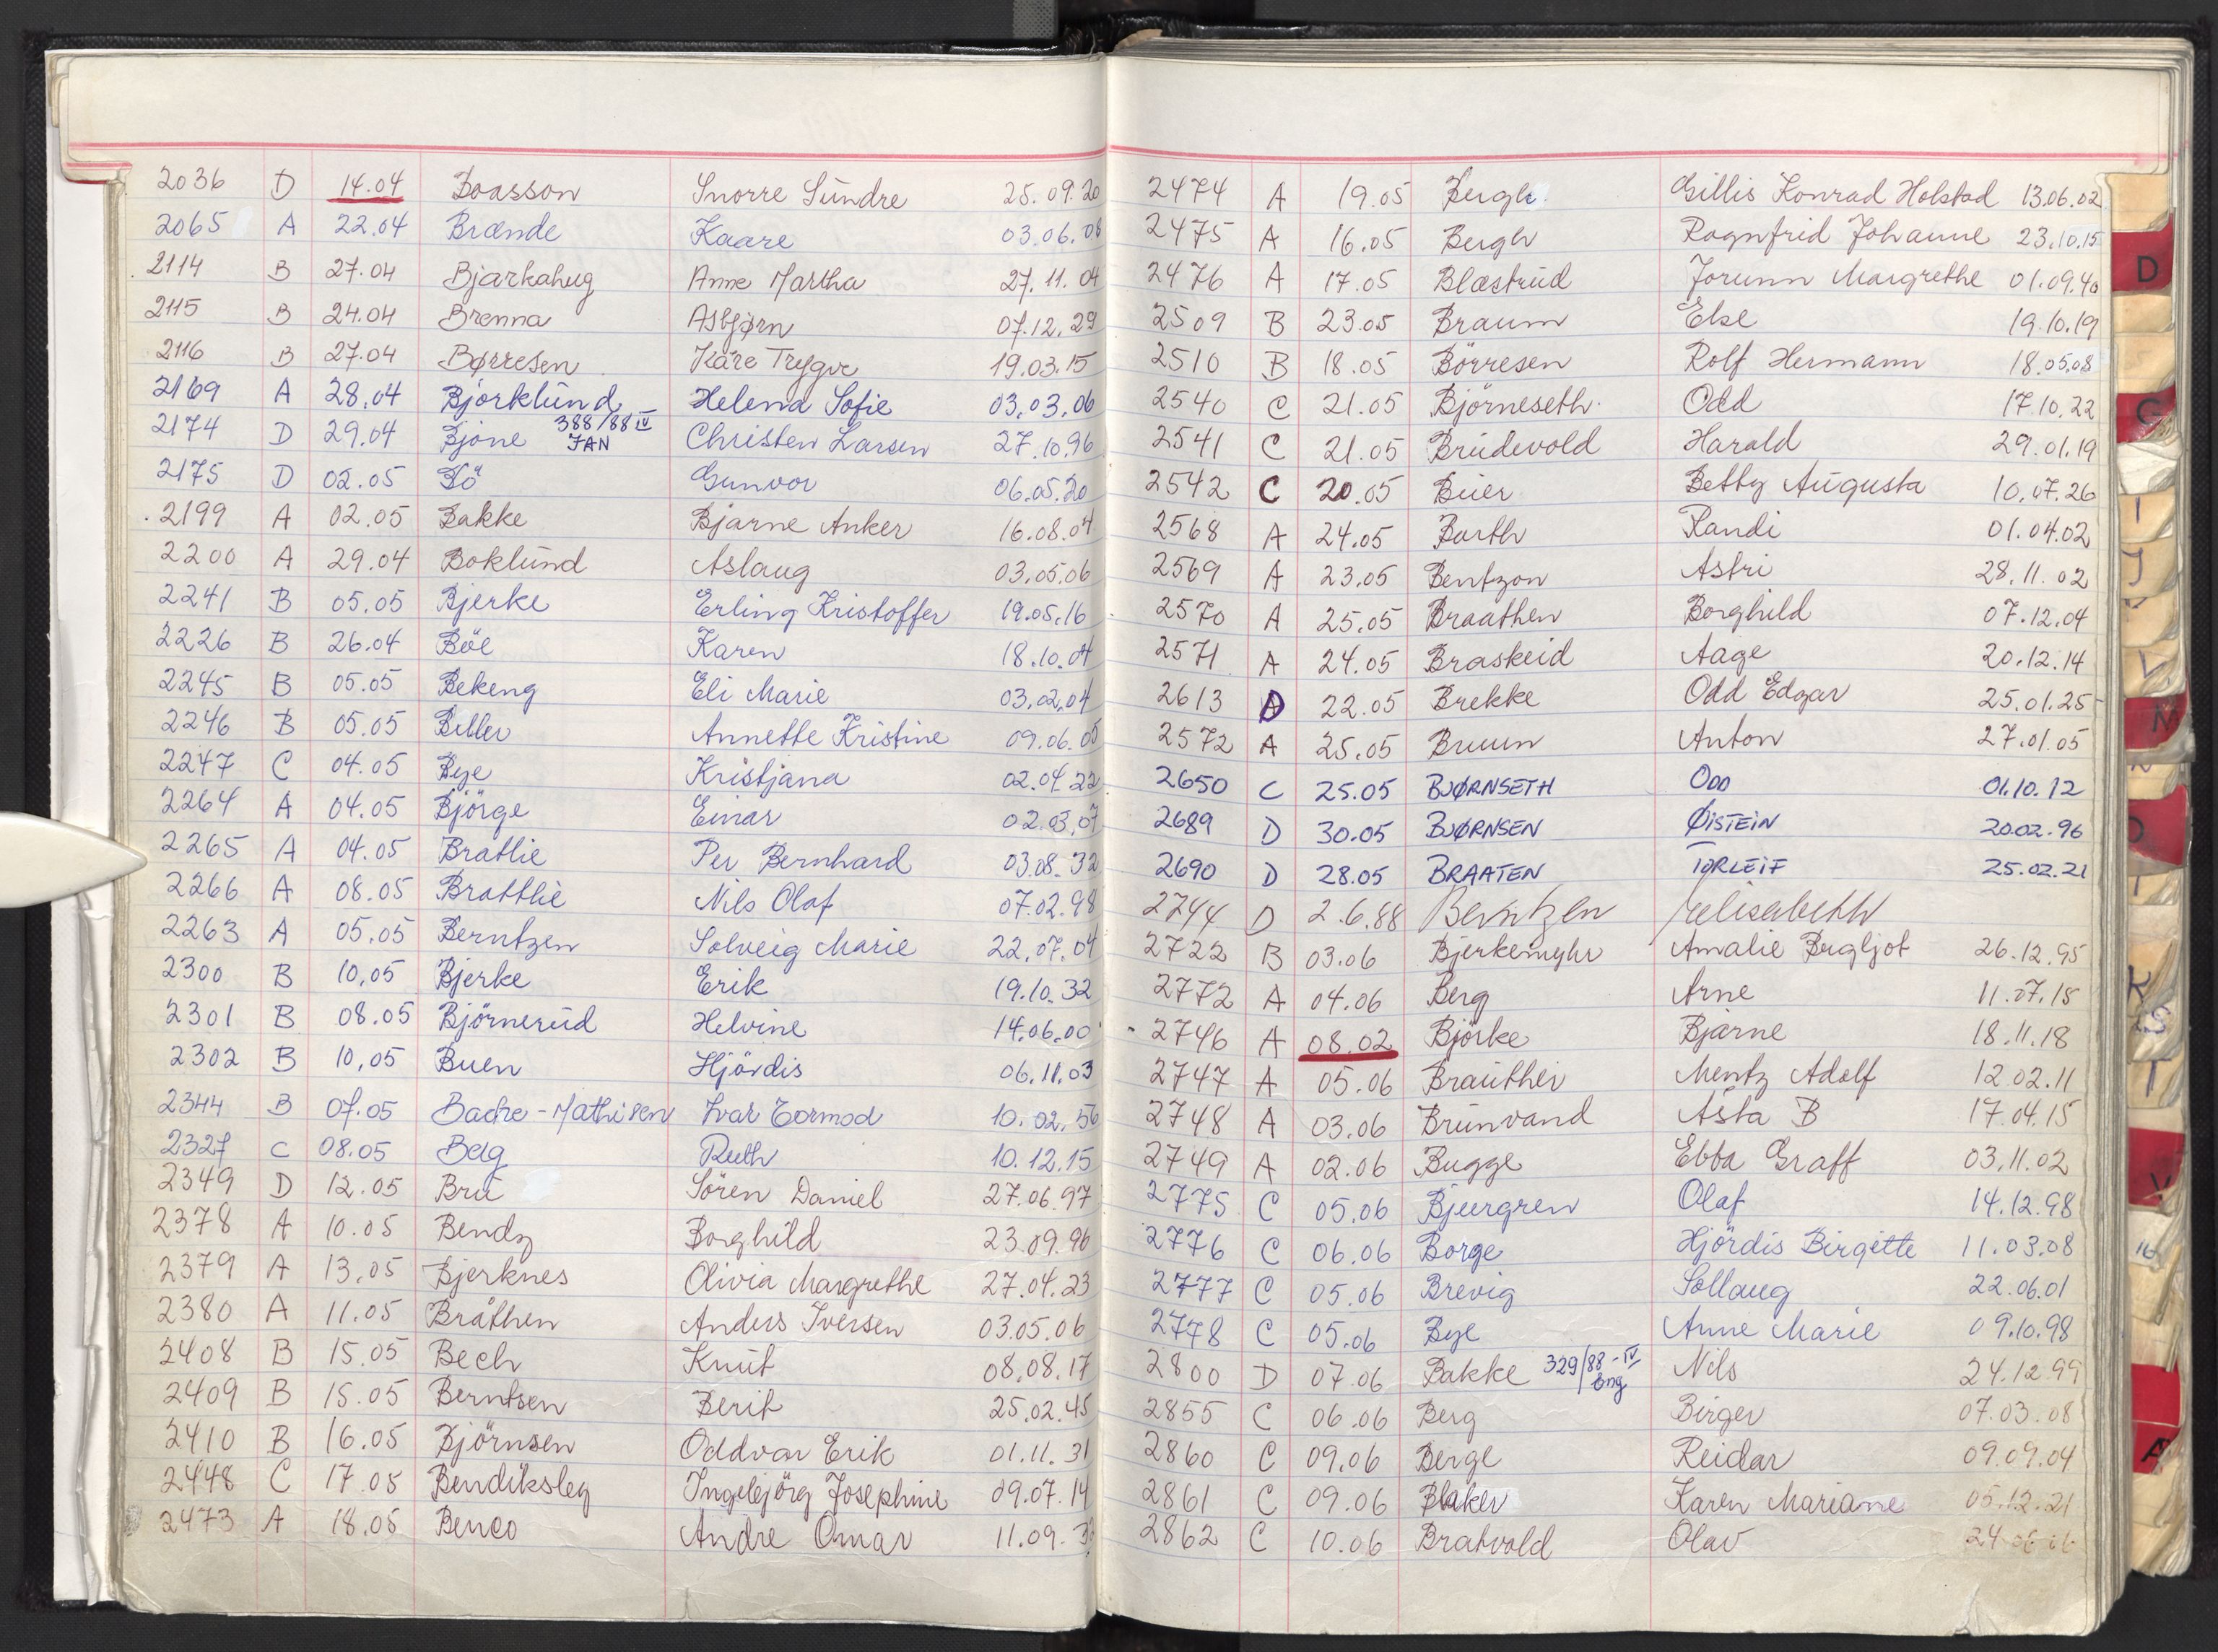 2036 D 14.04 Boasson Snorre Sundre 25.09.20
2065 A 22.04 Brænde Kaare 03.06.08
2114 B 27.04 Bjarkahug Anne Martha 27.11.04
2115 B 24.04 Brenna Asbjørn 07.12.29
2116 B 27.04 Børresen Kåre Trygve 19.03.15
2169 A 28.04 Bjorklund Helena Sofie 03.03.06
2174 D 29.04 Bjone 388/88 IV JAN Christen Larsen 27.10.96
2175 D 02.05 Bö Gunvor 06.05.20
2199 A 02.05 Bakke Bjarne Anker 16.08.04
2200 A 29.04 Boklund Aslaug 03.05.06
2241 B 05.05 Bjerke Erling Kristoffer 19.05.16
2226 B 26.04 Böe Karen 18.10.04
2245 B 05.05 Bekeng Eli Marie 03.02.04
2246 B 05.05 Biller Annette Kristine 09.06.05
2247 C 04.05 Bye Kristjana 02.04.22
2264 A 04.05 Björge Einar 02.03.07
2265 A 04.05 Bratlie Per Bernhard 03.08.32
2266 A 08.05 Brattlie Nils Olaf 07.02.98
2263 A 05.05 Berntzen Solveig Marie 22.07.04
2300 B 10.05 Bjerke Erik 19.10.32
2301 B 08.05 Björnerud Helvine 14.06.00
2302 B 10.05 Buen Hjördis 06.11.03
2344 B 07.05 Bache-Mathisen Ivar Tormod 10.02.56
2327 C 08.05 Berg Ruth 10.12.15
2349 D 12.05 Bru Sören Daniel 27.06.97
2378 A 10.05 Bendz Borghild 23.09.96
2379 A 13.05 Bjerknes Olivia Margrethe 27.04.23
2380 A 11.05 Bråthen Anders Iversen 03.05.06
2408 B 15.05 Bech Knut 08.08.17
2409 B 15.05 Berntsen Berit 25.02.45
2410 B 16.05 Björnsen Oddvar Erik 01.11.31
2448 C 17.05 Bendiksleg Ingebjörg Josephine 09.07.14
2473 A 18.05 Benco Andre Omar 11.09.
2474 A 19.05 Bergh Gillis Konrad Holstad 13.06.02
2475 A 16.05 Bergh Ragnfrid Johanne 23.10.15
2476 A 17.05 Blæstrud Jorunn Margrethe 01.09.40
2509 B 23.05 Braum Else 19.10.19
2510 B 18.05 Börresen Rolf Hermann 18.05.08
2540 C 21.05 Björneseth Odd 17.10.22
2541 C 21.05 Brudevold Harald 29.01.19
2542 C 20.05 Buer Betty Augusta 10.07.26
2568 A 24.05 Barth Randi 01.04.02
2569 A 23.05 Bentzon Astri 28.11.02
2570 A 25.05 Braathen Borghild 07.12.04
2571 A 24.05 Braskeid Aage 20.12.14
2613 D 22.05 Brekke Odd Edgar 25.01.25
2572 A 25.05 Bruun Anton 27.01.05
2650 C 25.05 BJØRNSETH ODD 01.10.12
2689 D 30.05 BJØRNSEN ØISTEIN 20.02.96
2690 D 28.05 BRAATEN TORLEIF 25.02.21
2744 D 2.6.88 Berntzen Elisabeth
2722 B 03.06 Bjerkemyhr Amalie Bergljot 26.12.95
2772 A 04.06 Berg Arne 11.07.15
2746 A 08.02 Björke Bjarne 18.11.18
2747 A 05.06 Brauther Mentz Adolf 12.02.11
2748 A 03.06 Brunvand Åsta B 17.04.15
2749 A 02.06 Bugge Ebba Graff 03.11.02
2775 C 05.06 Bjurgren Olaf 14.12.98
2776 C 06.06 Borge Hjördis Birgitte 11.03.08
2777 C 05.06 Brevig Sollaug 22.06.01
2778 C 05.06 Bye Anne Marie 09.10.98
2800 D 07.06 Bakke 329/88-IV Eng Nils 24.12.99
2855 C 06.06 Berg Birger 07.03.08
2860 C 09.06 Berge Reidar 09.09.04
2861 C 09.06 Blaker Karen Mariane 05.12.21
2862 C 10.06 Bratvold Olav
D
G
I
J
M
K
S
T
V